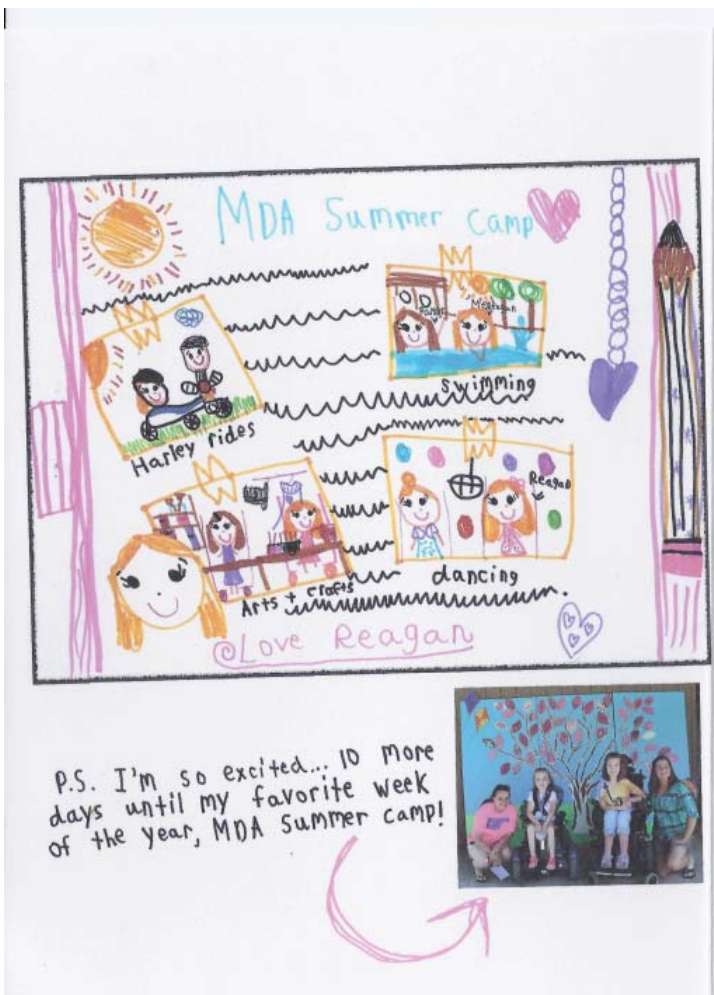 MDA Summer Camp
swimming
Harley rides
Reagan
Arts + Crafts
dancing
Love Reagan
P.S. I'm so excited... 10 more
days until my favorite week
of the year, MDA Summer camp!